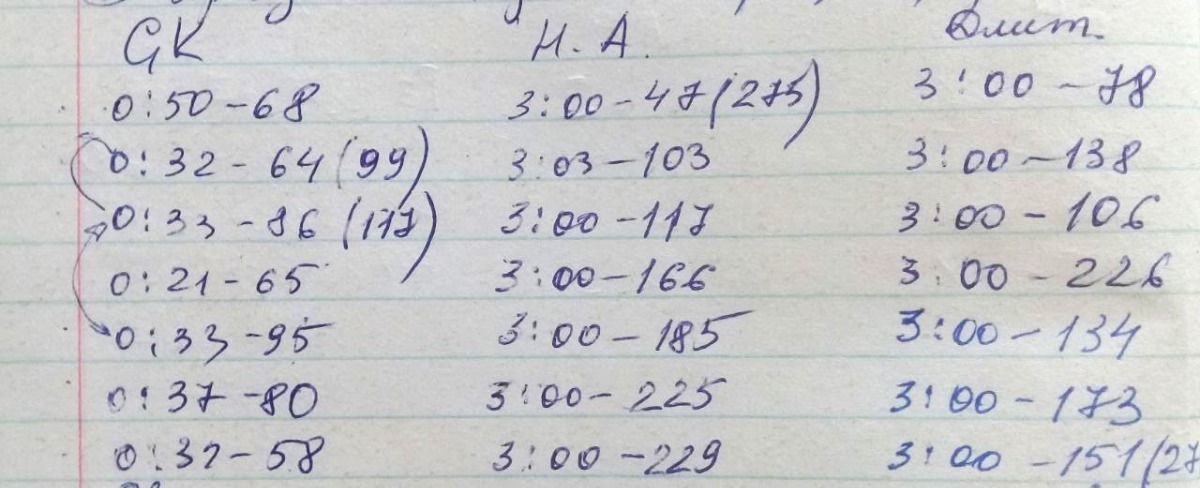 GK Н. А. Длит.
0:50-68 3:00-47(275) 3:00-78
0:32-64(99) 3:03-103 3:00-138
0:33-86(117) 3:00-117 3:00-106
0:21-65 3:00-166 3:00-226
0:33-95 3:00-185 3:00-134
0:37-80 3:00-225 3:00-173
0:32-58 3:00-229 3:00-151(27